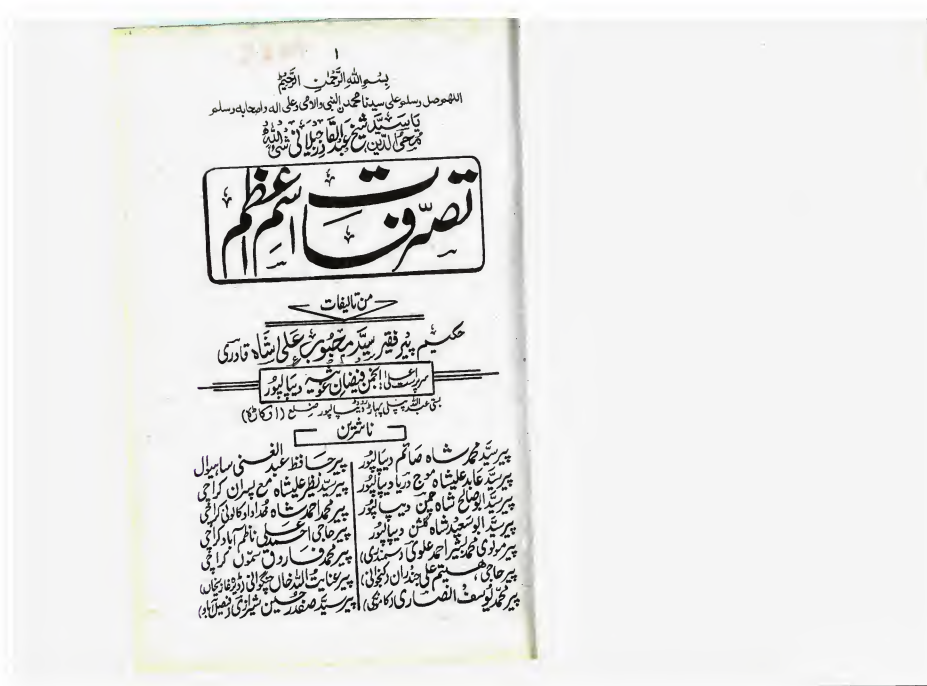 ۱
بِسْمِ اللهِ الرَّحْمٰنِ الرَّحِیْمِ
اللهم صل وسلم علی سیدنا محمدن النبی والامی وعلی اله واصحابه وسلم
یا سیّد شیخ عبدالقادر جیلانی شیءً للہ
محی الدین
تصرّفات اسمِ اعظم
من تالیفات
حکیم پیر فقیر سیّد محبوب علی شاہ قادری
سرپرست اعلیٰ: انجمن فیضانِ غوثیہ دیپالپور
بستی عبداللہ پہاڑ دیپالپور ضلع (اوکاڑہ)
ناشرین
پیر سیّد محمد شاہ صائم دیپالپور
پیر سیّد عابد علیشاہ موج دریا دیپالپور
پیر سیّد ابو صالح شاہ چمن دیپالپور
پیر سیّد ابو سعید شاہ گلشن دیپالپور
پیر مولوی محمد بشیر احمد علوی (سمندری)
پیر حاجی ہیتم علی جندران (کنجوانی)
پیر محمد یوسف انصاری
پیر حافظ عبد الغنی ساہیوال
پیر سیّد نظر علیشاہ مع پسران کراچی
پیر محمد احمد شاہ خداداد کالونی کراچی
پیر حاجی احمد علی ناظم آباد کراچی
پیر محمد فاروق سموں کراچی
پیر عنایت اللہ خاں چنگوانی (ڈیرہ غازیخاں)
پیر سیّد صفدر حسین شیرازی (فیصل آباد)